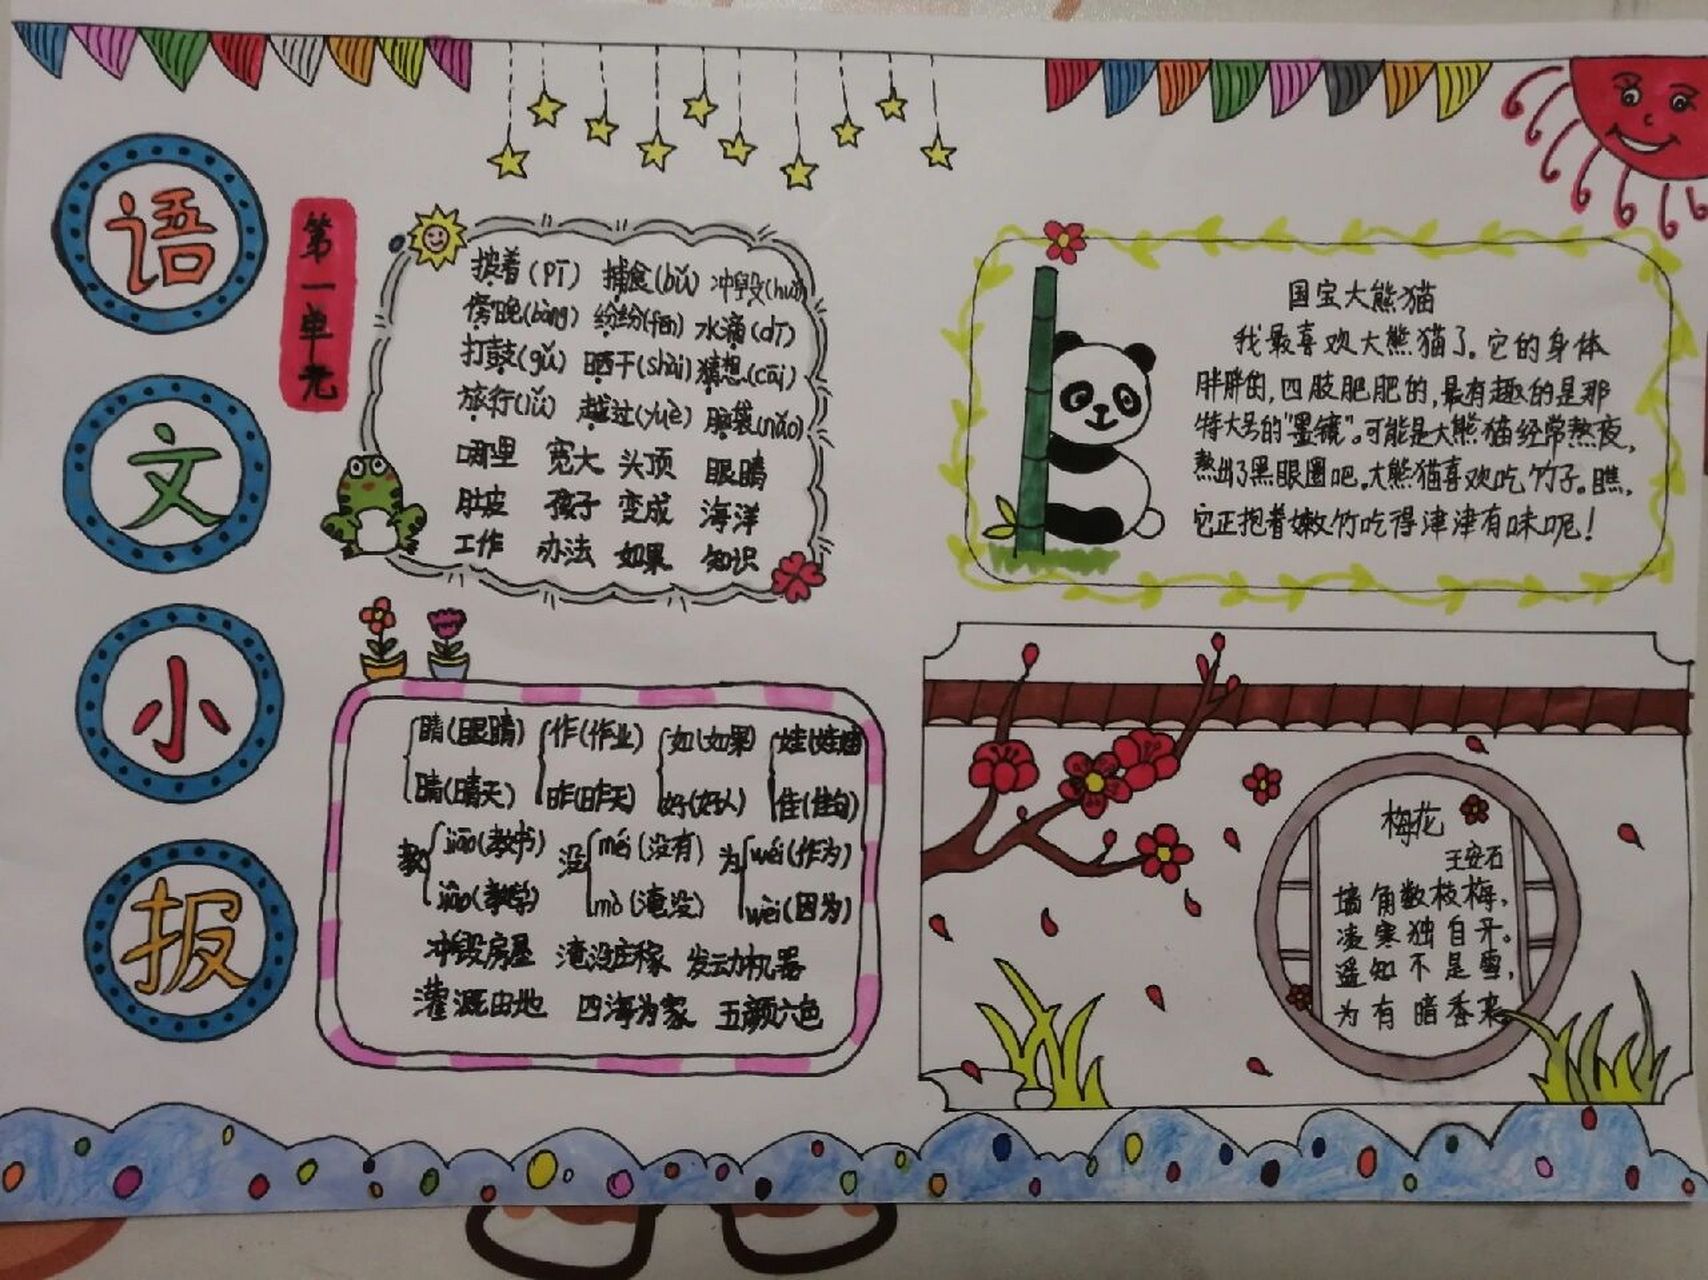 语文小报
第一单元
披着(pī) 捕食(bǔ) 冲毁(huǐ)
傍晚(bàng) 纷纷(fēn) 水滴(dī)
打鼓(gǔ) 晒干(shài) 猜想(cāi)
旅行(lǚ) 越过(yuè) 脑袋(nǎo)
哪里 宽大 头顶 眼睛
肚皮 孩子 变成 海洋
工作 办法 如果 知识
睛(眼睛) 作(作业) 如(如果) 娃(娃娃)
晴(晴天) 昨(昨天) 好(好人) 佳(佳句)
教 jiāo(教书) 没 méi(没有) 为 wéi(作为)
jiào(教学) mò(淹没) wèi(因为)
冲毁房屋 淹没庄稼 发动机器
灌溉田地 四海为家 五颜六色
国宝大熊猫
我最喜欢大熊猫了。它的身体
胖胖的,四肢肥肥的,最有趣的是那
特大号的“墨镜”。可能是大熊猫经常熬夜,
熬出了黑眼圈吧。大熊猫喜欢吃竹子。瞧,
它正抱着嫩竹吃得津津有味呢!
梅花
王安石
墙角数枝梅,
凌寒独自开。
遥知不是雪,
为有暗香来。